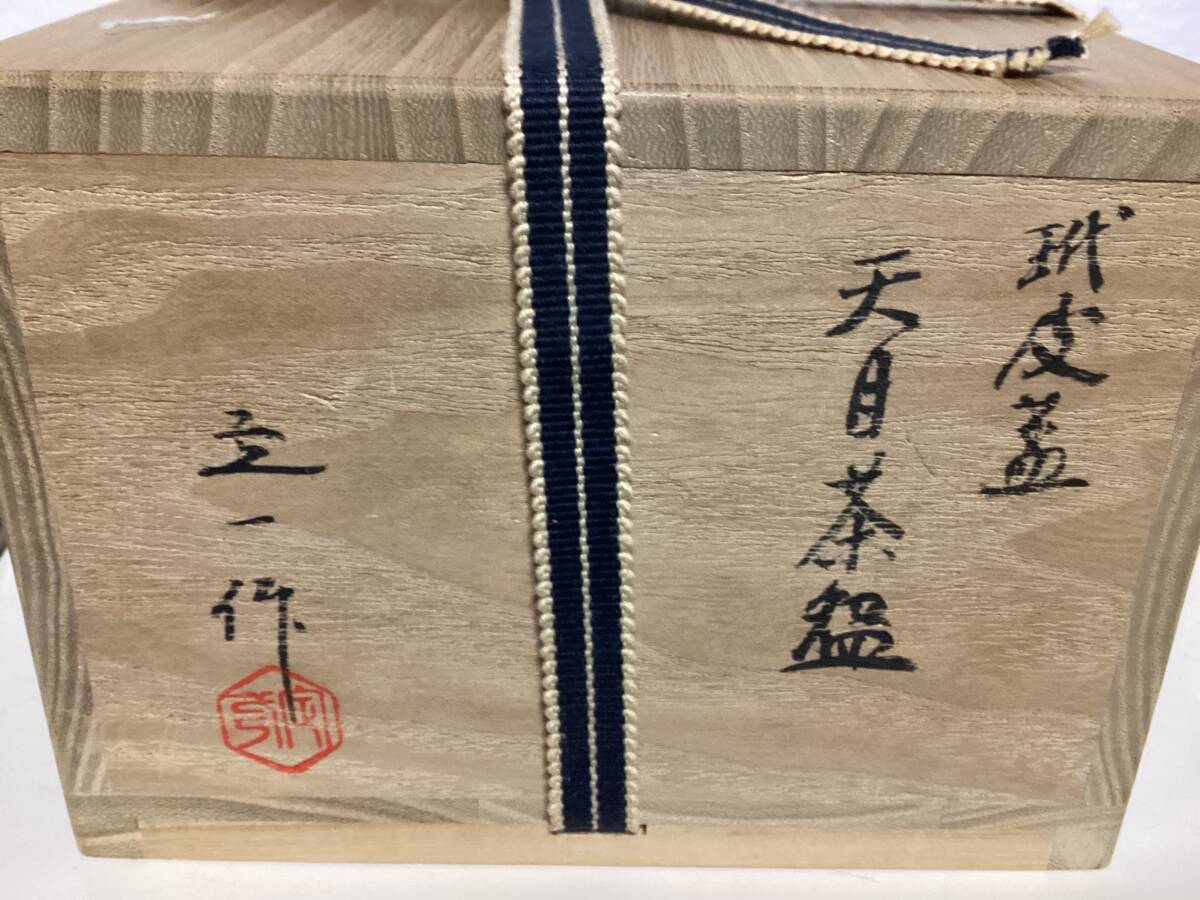 玳皮盞
天目茶盌
立一作